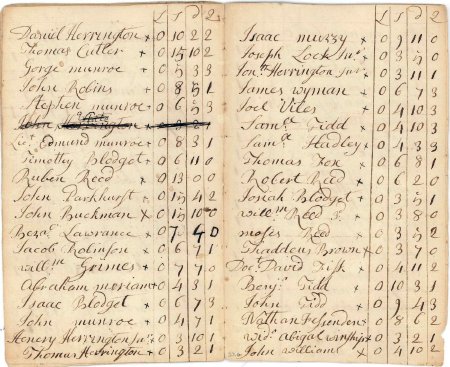 L s d 2
Daniel Herrington x 0 10 2 2
Thomas Cutler x 0 15 10 2
Gorge munroe x 0 5 3 3
John Robins x 0 8 5 1
Stephen munroe x 0 6 5 3
John
Lieut Edmund munroe x 0 8 3 1
Timothy Blodget x 0 6 11 0
Ruben Reed x 0 13 0 0
John Parkhurst x 0 15 4 2
John Buckman x 0 15 10 0
Lawrance x 0 7 9 0
Jacob Robinson x 0 6 7 1
willm Grimes x 0 7 7 0
Abraham moriam x 0 4 3 1
Isaac Blodget x 0 6 7 3
John munroe x 0 4 7 1
Henery Herrington Junr x 0 3 10 1
Thomas Herrington x 0 3 2 1
L s d 2
Isaac muzzy x 0 9 11 0
Joseph Lock Junr x 0 3 5 0
Jonth Herrington Junr x 0 3 11 1
James wyman x 0 6 7 3
Joel Viles x 0 4 10 3
Saml Tidd x 0 4 10 3
Saml Hadley x 0 4 3 3
Thomas Fox x 0 6 8 1
Robert Reed x 0 6 2 0
Josiah Blodget x 0 3 5 1
willm Reed x 0 3 8 0
moses Reed x 0 3 5 2
Thaddeus Brown x 0 3 7 0
Doc David Fisk x 0 4 11 2
Benjn Tidd x 0 10 3 1
John Tidd x 0 9 4 3
Nathan Fessenden x 0 8 6 2
wid Abigal winship x 0 3 2 1
John williams x 0 4 10 2